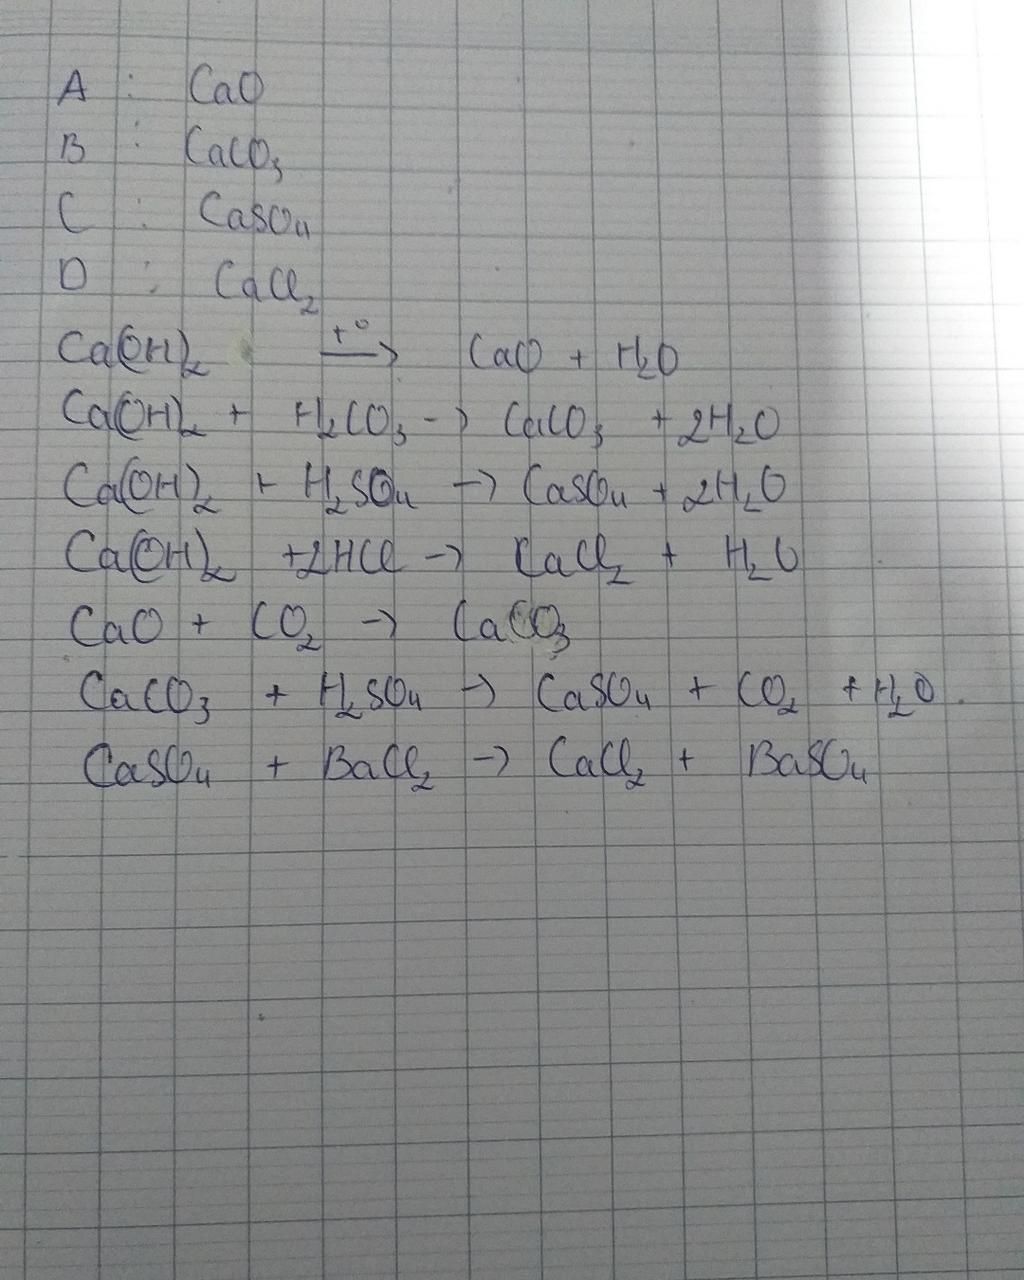 A : CaO
B : CaCO₃
C : CaSO₄
D : CaCl₂
Ca(OH)₂ t° → CaO + H₂O
Ca(OH)₂ + H₂CO₃ → CaCO₃ + 2H₂O
Ca(OH)₂ + H₂SO₄ → CaSO₄ + 2H₂O
Ca(OH)₂ + 2HCl → CaCl₂ + H₂O
CaO + CO₂ → CaCO₃
CaCO₃ + H₂SO₄ → CaSO₄ + CO₂ + H₂O.
CaSO₄ + BaCl₂ → CaCl₂ + BaSO₄